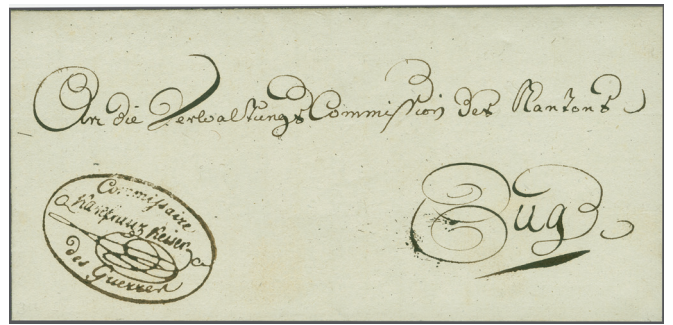 An die Verwaltungs Commission des Kantons
Zug
Commissaire
Karl franz Keiser
des Guerres